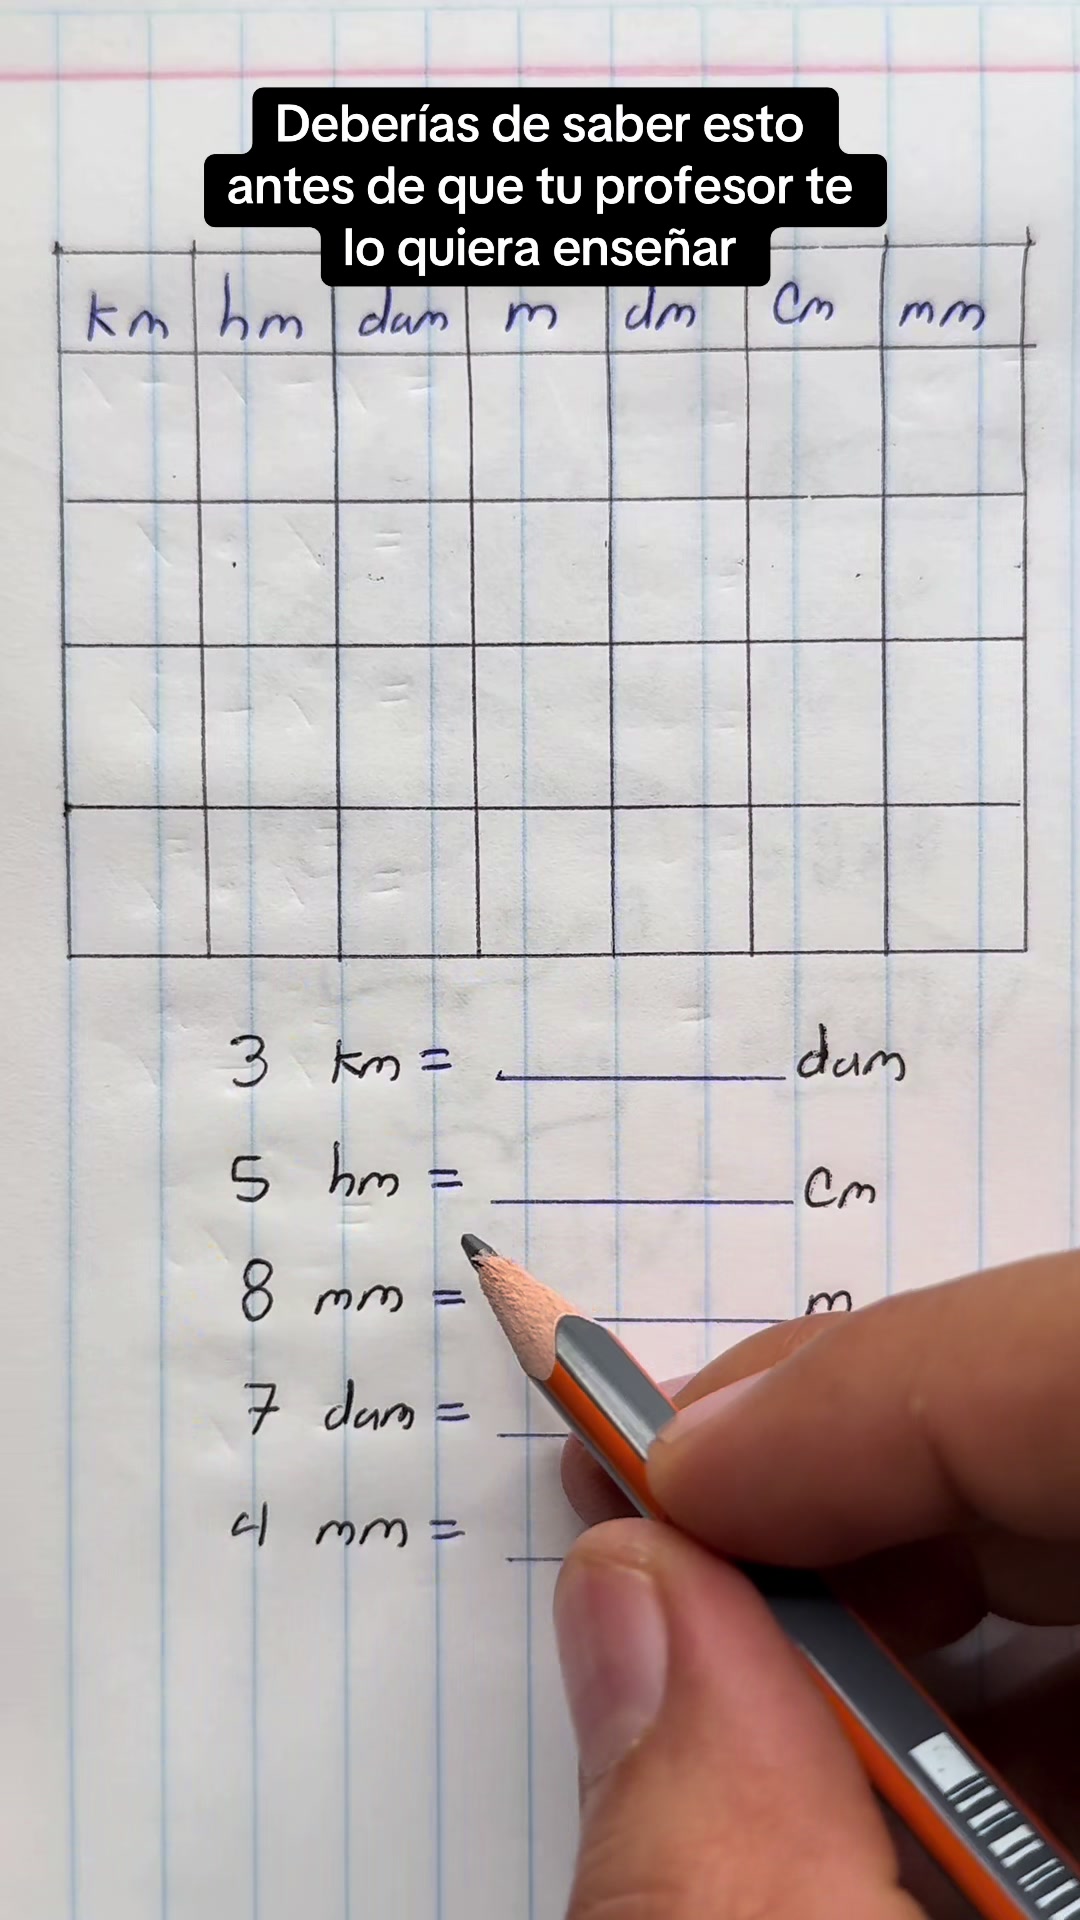 Deberías de saber esto
antes de que tu profesor te
lo quiera enseñar
km hm dam m dm cm mm
3 km = dam
5 hm = cm
8 mm = m
7 dam =
4 mm =